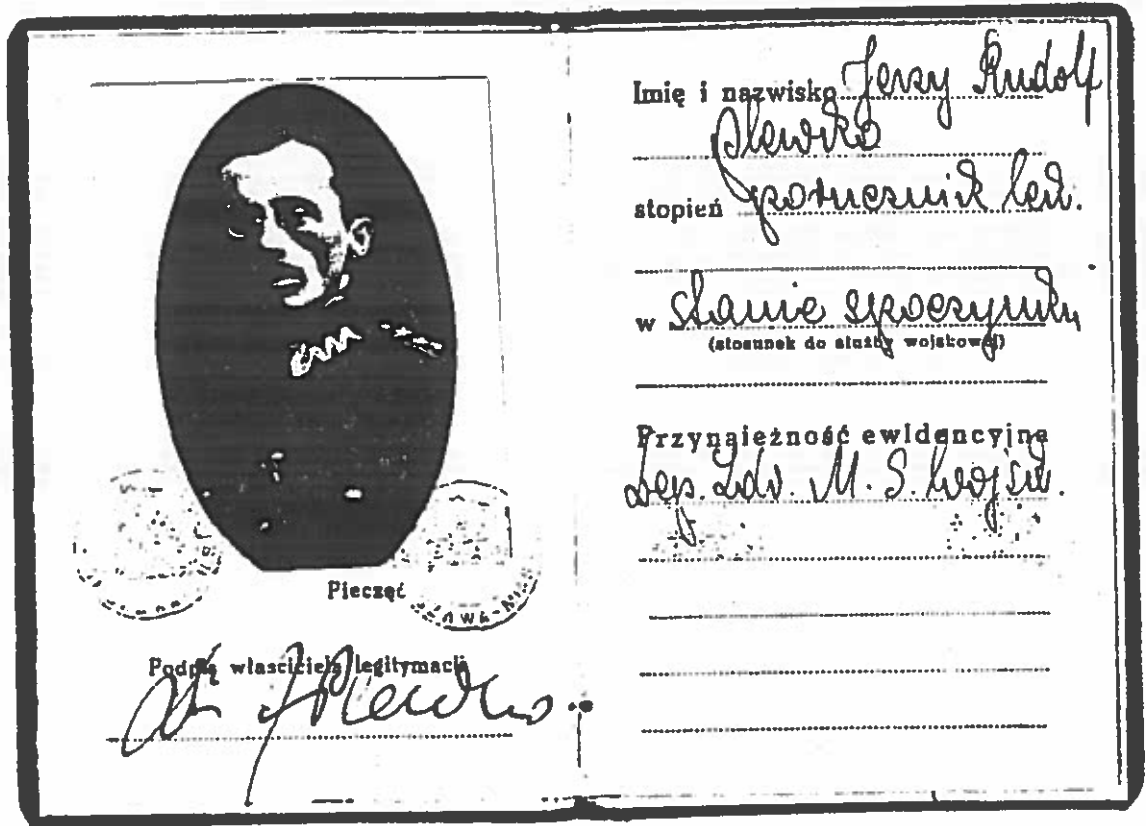 Pieczęć
Podpis właściciela legitymacji
Imię i nazwisko Jerzy Rudolf
Plewko
stopień porucznik lek.
w stanie spoczynku
(stosunek do służby wojskowej)
Przynależność ewidencyjna
Dep. Zdr. M. S. Wojsk.